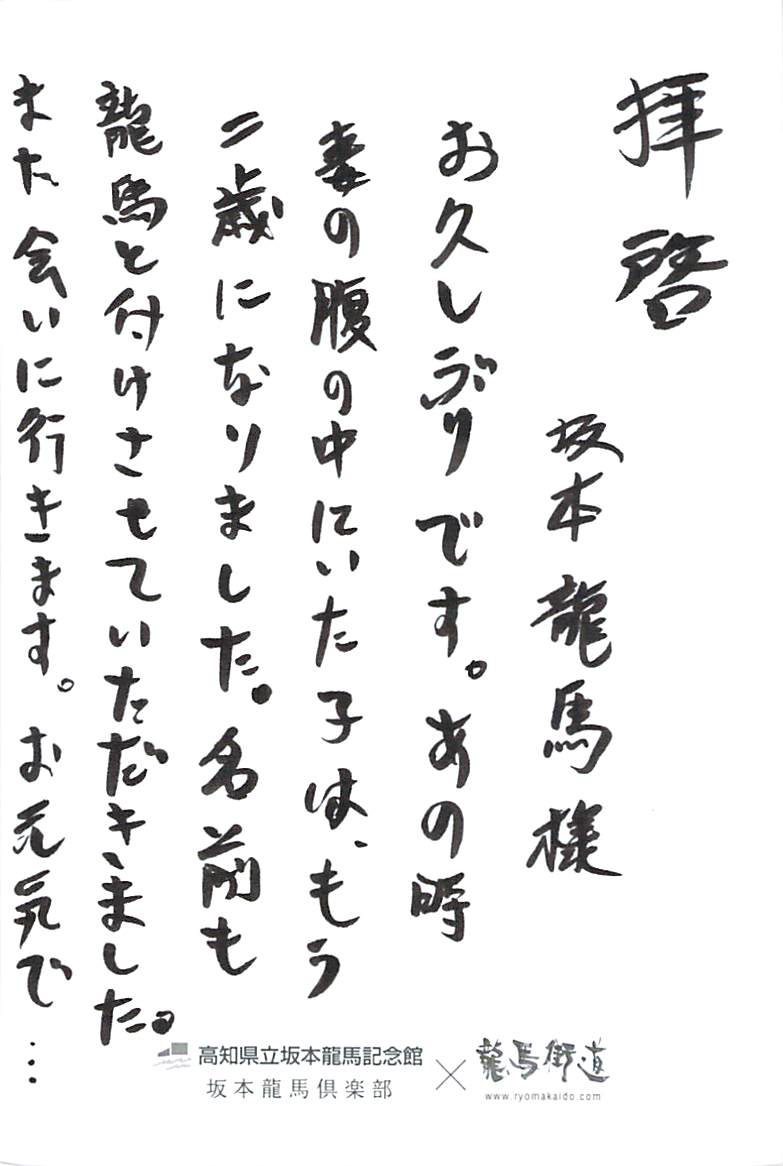 拝啓
坂本龍馬様
お久しぶりです。あの時
妻の腹の中にいた子は、もう
二歳になりました。名前も
龍馬と付けさせていただきました。
また会いに行きます。お元気で…
高知県立坂本龍馬記念館
坂本龍馬倶楽部
×
龍馬街道
www.ryomakaido.com